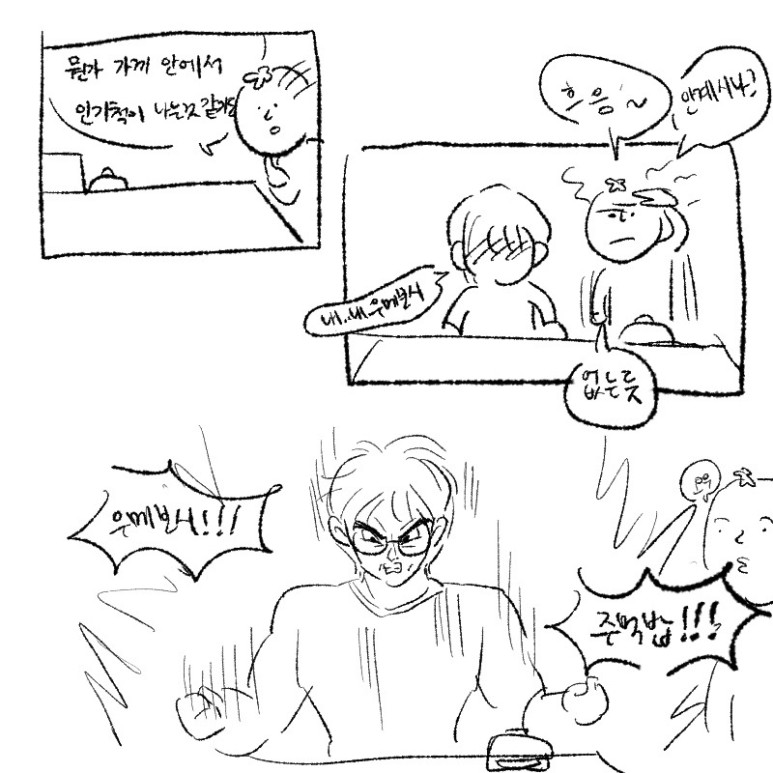 뭔가 가게 안에서
인기척이 나는것 같아요
흐음~
안계시나?
네..네 우메보시
없는듯
우메보시!!!
주먹밥!!!